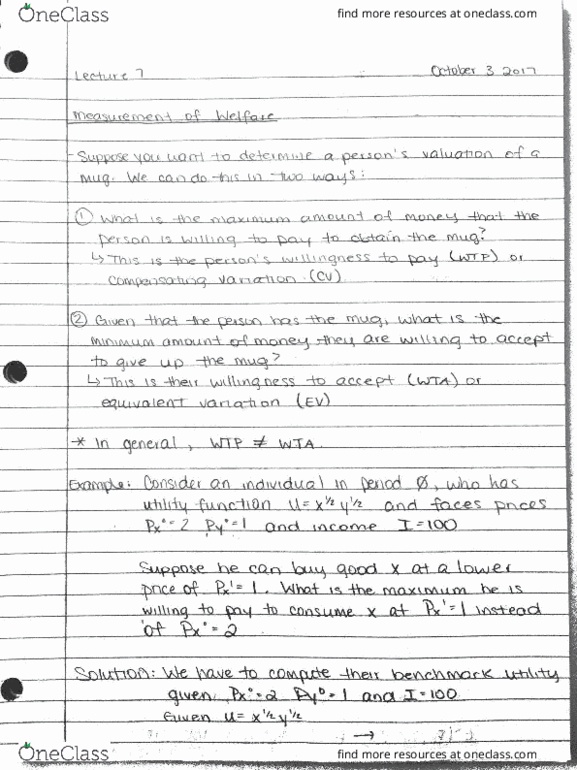 OneClass
find more resources at oneclass.com
Lecture 7
October 3 2017
Measurement of Welfare
Suppose you want to determine a person's valuation of a
mug. We can do this in two ways:
① What is the maximum amount of money that the
person is willing to pay to obtain the mug?
↳ This is the person's willingness to pay (WTP) or
compensating variation (CV)
② Given that the person has the mug, what is the
minimum amount of money they are willing to accept
to give up the mug?
↳ This is their willingness to accept (WTA) or
equivalent variation (EV)
* In general, WTP ≠ WTA
Example: Consider an individual in period 0, who has
utility function U=x^½y^½ and faces prices
Px°=2 Py°=1 and income I=100
Suppose he can buy good x at a lower
price of Px'=1. What is the maximum he is
willing to pay to consume x at Px'=1 instead
of Px°=2
Solution: We have to compute their benchmark utility
given Px°=2 Py°=1 and I=100
Given U=x^½y^½
→
OneClass
find more resources at oneclass.com